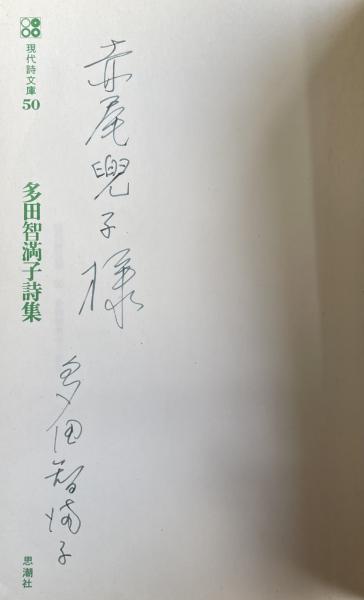 現代詩文庫
50
多田智満子詩集
思潮社
赤尾兜子様
多田智満子